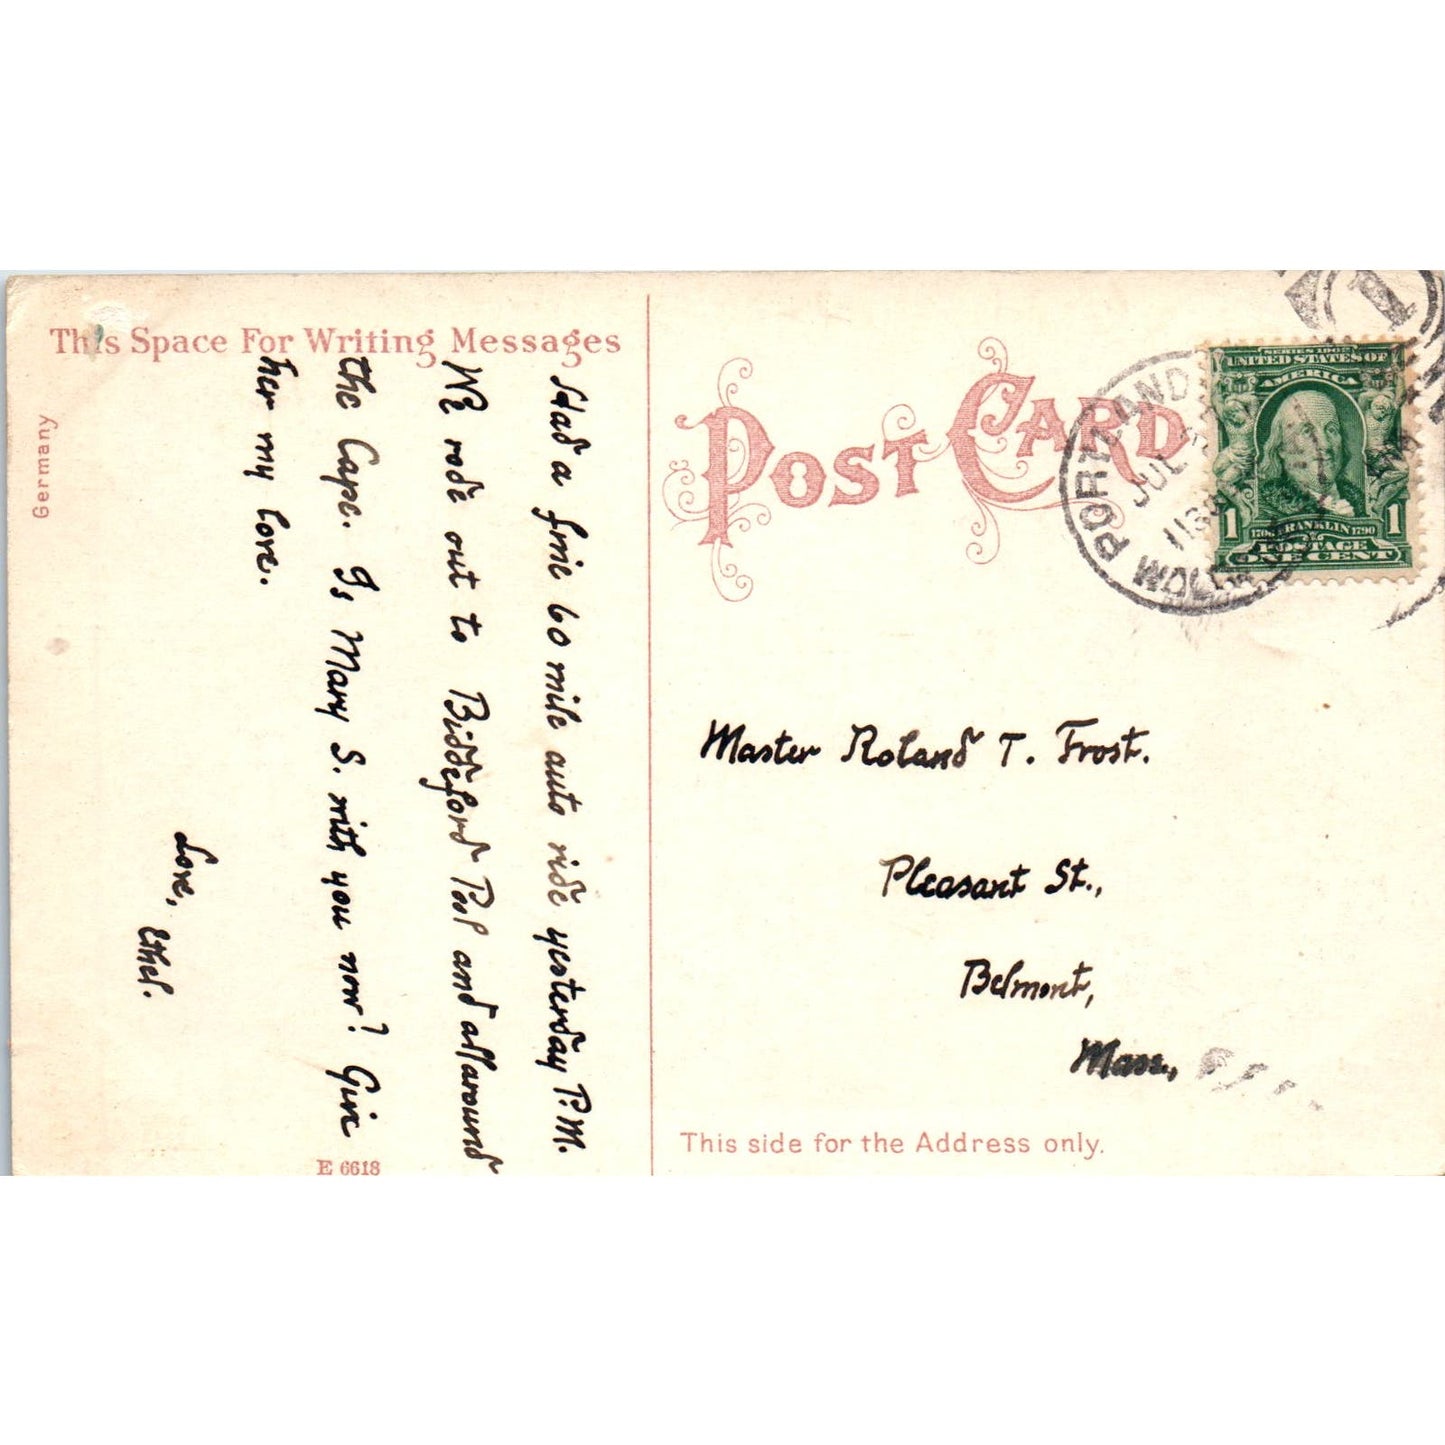 This Space For Writing Messages
Germany
Had a fine 60 mile auto ride yesterday P.M.
We rode out to Biddeford Pool and all around
the Cape. Is Mary S. with you now? Give
her my love.
Love,
Ethel.
E 6618
POST CARD
PORTLAND
JUL
1130
SERIES 1902
UNITED STATES OF
AMERICA
1 FRANKLIN 1790 1
POSTAGE
ONE CENT
1
Master Roland T. Frost.
Pleasant St.,
Belmont,
Mass.,
This side for the Address only.